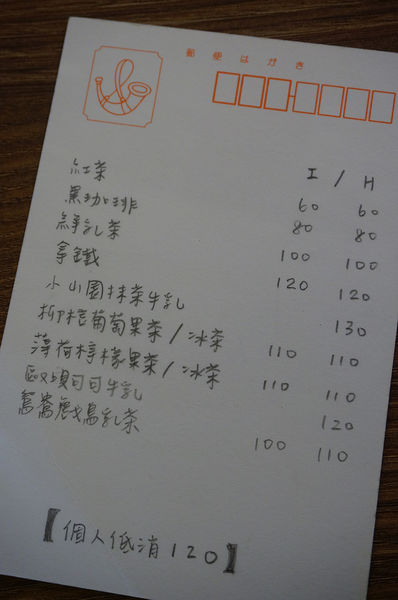 郵便はがき
I / H
紅茶 60 60
黑咖啡 80 80
鮮乳茶 100 100
拿鐵 120 120
小山園抹茶牛乳 130
柳橙葡萄果茶/冰茶 110 110
薄荷檸檬果茶/冰茶 110 110
可可牛乳 120
鴛鴦戲鳥乳茶 100 110
【個人低消120】